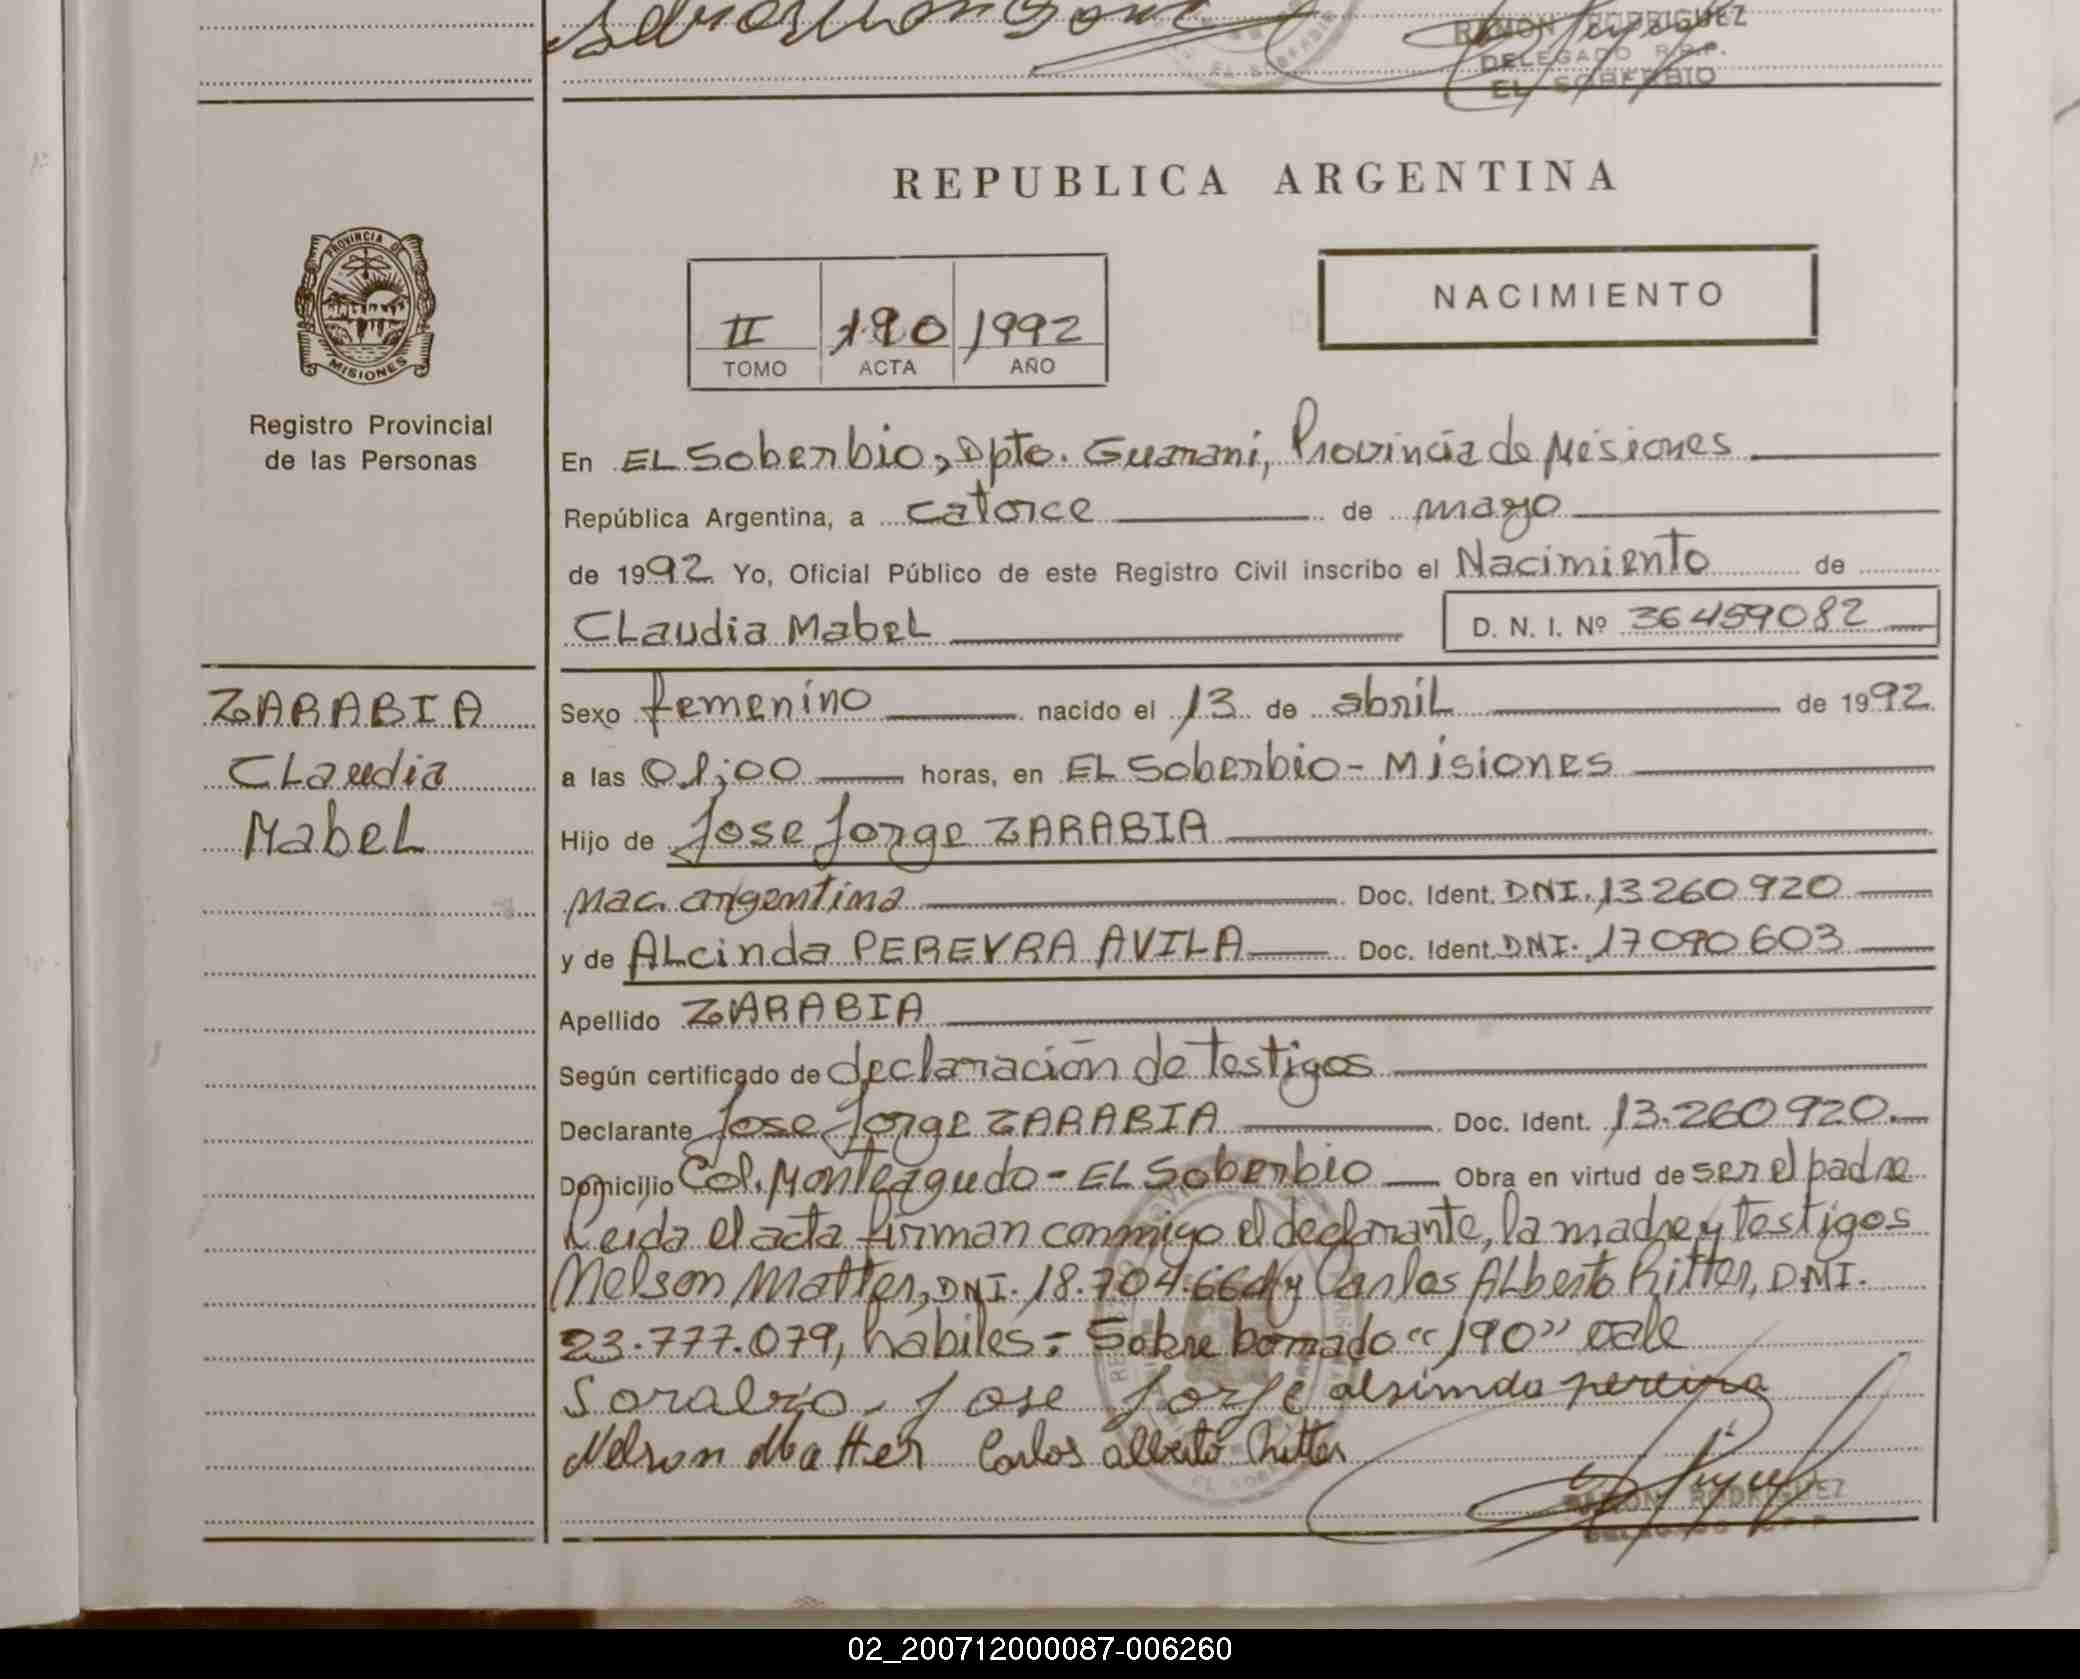 RAMON RODRIGUEZ
DELEGADO R.P.P.
EL SOBERBIO
REPUBLICA ARGENTINA
PROVINCIA DE
MISIONES
NACIMIENTO
II 190 1992
TOMO ACTA AÑO
Registro Provincial
de las Personas
En EL Soberbio, Dpto. Guarani, Provincia de Misiones
República Argentina, a catorce de mayo
de 1992 Yo, Oficial Público de este Registro Civil inscribo el Nacimiento de
CLaudia MabeL D. N. I. Nº 36459082
ZARABIA
CLaudia
MabeL
Sexo femenino nacido el 13 de abril de 1992
a las 01;00 horas, en EL Soberbio - Misiones
Hijo de Jose Jorge ZARABIA
nac. argentina Doc. Ident. DNI. 13260920
y de ALcinda PEREYRA AVILA Doc. Ident. DNI. 17090603
Apellido ZARABIA
Según certificado de declaración de testigos
Declarante Jose Jorge ZARABIA Doc. Ident. 13.260920.
Domicilio Col. Monteagudo - EL Soberbio Obra en virtud de ser el padre
Leida el acta firman conmigo el declarante, la madre y testigos
Nelson Matter, DNI. 18.704.664 y Carlos ALberto Ritter, DNI.
23.777.079, habiles = Sobre borrado "190" vale
Jose Jorge alsinda pereira
Nelson Matter Carlos alberto Ritter
RAMON RODRIGUEZ
DELEGADO R.P.P.
02_200712000087-006260